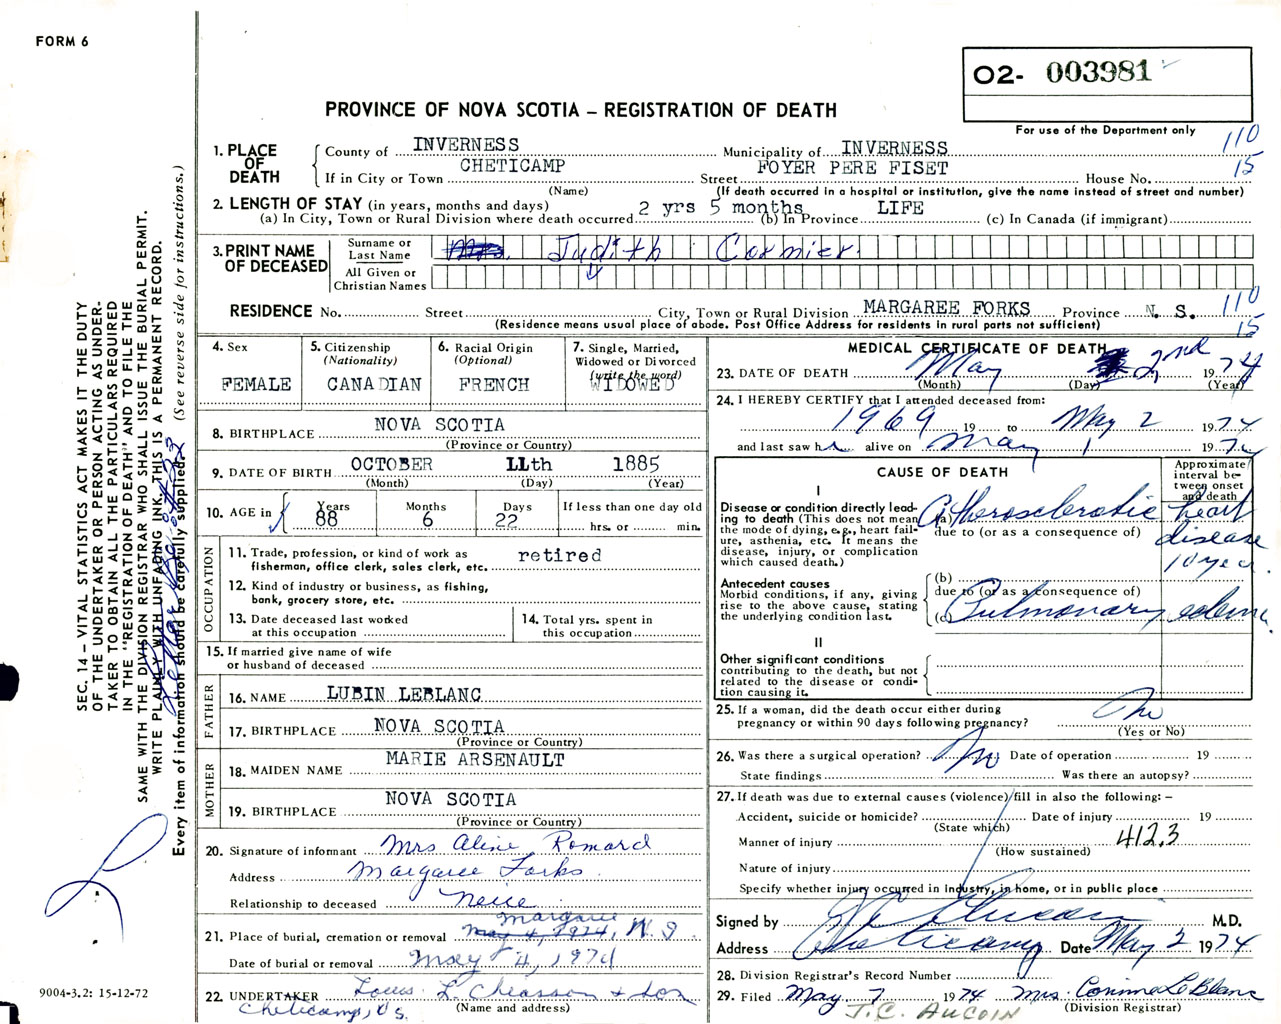 FORM 6
O2- 003981
PROVINCE OF NOVA SCOTIA – REGISTRATION OF DEATH
For use of the Department only
110
15
1. PLACE OF DEATH
County of INVERNESS Municipality of INVERNESS
If in City or Town CHETICAMP Street FOYER PERE FISET House No.
(Name) (If death occurred in a hospital or institution, give the name instead of street and number)
2. LENGTH OF STAY (in years, months and days)
(a) In City, Town or Rural Division where death occurred 2 yrs 5 months (b) In Province LIFE (c) In Canada (if immigrant)
3. PRINT NAME OF DECEASED
Surname or Last Name Mrs. Judith Cormier
All Given or Christian Names
RESIDENCE No. Street City, Town or Rural Division MARGAREE FORKS Province N. S. 110
(Residence means usual place of abode. Post Office Address for residents in rural parts not sufficient) 15
4. Sex
FEMALE
5. Citizenship
(Nationality)
CANADIAN
6. Racial Origin
(Optional)
FRENCH
7. Single, Married, Widowed or Divorced
(write the word)
WIDOWED
8. BIRTHPLACE NOVA SCOTIA
(Province or Country)
9. DATE OF BIRTH OCTOBER 11th 1885
(Month) (Day) (Year)
10. AGE in
Years 88
Months 6
Days 22
If less than one day old
hrs. or min.
OCCUPATION
11. Trade, profession, or kind of work as
fisherman, office clerk, sales clerk, etc. retired
12. Kind of industry or business, as fishing,
bank, grocery store, etc.
13. Date deceased last worked
at this occupation
14. Total yrs. spent in
this occupation
15. If married give name of wife
or husband of deceased
FATHER
16. NAME LUBIN LEBLANC
17. BIRTHPLACE NOVA SCOTIA
(Province or Country)
MOTHER
18. MAIDEN NAME MARIE ARSENAULT
19. BIRTHPLACE NOVA SCOTIA
(Province or Country)
20. Signature of informant Mrs Aline Romard
Address Margaree Forks
Relationship to deceased Neice
21. Place of burial, cremation or removal May 4, 1974, Margaree N.S.
Date of burial or removal May 4, 1974
22. UNDERTAKER Louis L. Chiasson & Son
(Name and address)
Cheticamp, N.S.
MEDICAL CERTIFICATE OF DEATH
23. DATE OF DEATH May 2nd 1974
(Month) (Day) (Year)
24. I HEREBY CERTIFY that I attended deceased from:
1969 19 to May 2 1974
and last saw her alive on May 1 1974
CAUSE OF DEATH
Approximate interval between onset and death
I
Disease or condition directly leading to death (This does not mean the mode of dying, e.g., heart failure, asthenia, etc. It means the disease, injury, or complication which caused death.)
(a) Atherosclerotic heart disease 10 year
due to (or as a consequence of)
Antecedent causes
Morbid conditions, if any, giving rise to the above cause, stating the underlying condition last.
(b)
due to (or as a consequence of)
(c) Pulmonary edema
II
Other significant conditions
contributing to the death, but not related to the disease or condition causing it.
25. If a woman, did the death occur either during
pregnancy or within 90 days following pregnancy? No
(Yes or No)
26. Was there a surgical operation? No Date of operation 19
State findings Was there an autopsy?
27. If death was due to external causes (violence) fill in also the following: –
Accident, suicide or homicide? Date of injury 19
(State which)
Manner of injury 412.3
(How sustained)
Nature of injury
Specify whether injury occurred in industry, in home, or in public place
Signed by J C Aucoin M.D.
Address Cheticamp Date May 2 1974
28. Division Registrar's Record Number
29. Filed May 7 1974 Mrs. Corinne LeBlanc
(Division Registrar)
J.C. AUCOIN
SEC. 14 – VITAL STATISTICS ACT MAKES IT THE DUTY
OF THE UNDERTAKER OR PERSON ACTING AS UNDER-
TAKER TO OBTAIN ALL THE PARTICULARS REQUIRED
IN THE "REGISTRATION OF DEATH" AND TO FILE THE
SAME WITH THE DIVISION REGISTRAR WHO SHALL ISSUE THE BURIAL PERMIT.
WRITE PLAINLY WITH UNFADING INK. THIS IS A PERMANENT RECORD.
Every item of information should be carefully supplied. (See reverse side for instructions.)
9004-3.2: 15-12-72